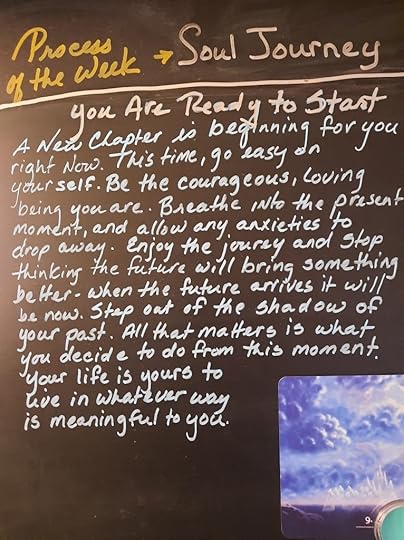 Process
of the Week → Soul Journey
You Are Ready to Start
A New Chapter is beginning for you
right Now. This time, go easy on
yourself. Be the courageous, loving
being you are. Breathe into the present
moment, and allow any anxieties to
drop away. Enjoy the jourey and stop
thinking the future will bring something
better - when the future arrives it will
be now. Step out of the shadow of
your past. All that matters is what
you decide to do from this moment.
Your life is yours to
live in whatever way
is meaningful to you.
9.